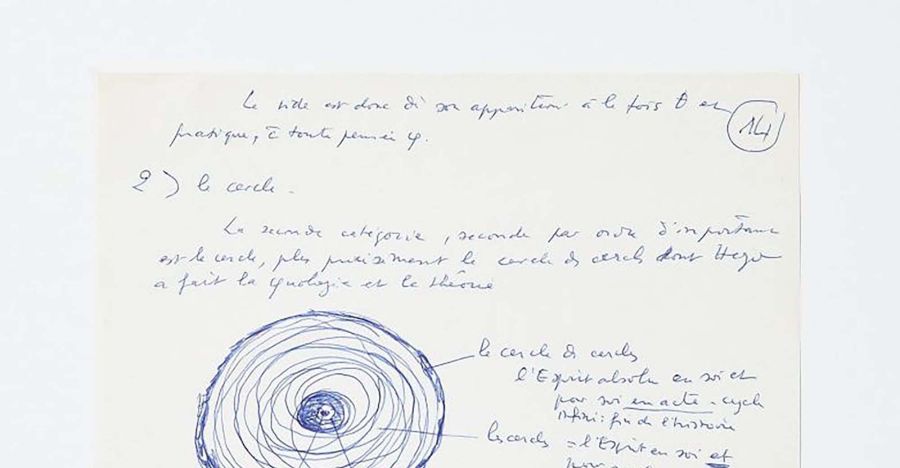 Le vide est donc son apparition à la fois θ
14
pratique, à toute pensée φ.
2) le cercle.
La seconde catégorie, seconde par ordre d'importance
est le cercle, plus précisément le cercle des cercles dont Hegel
a fait la et la théorie
le cercle de cercles
l'Esprit absolu en soi et
pour soi en acte - cycle
infini : fin de l'histoire
les cercles = l'Esprit en soi et
pour